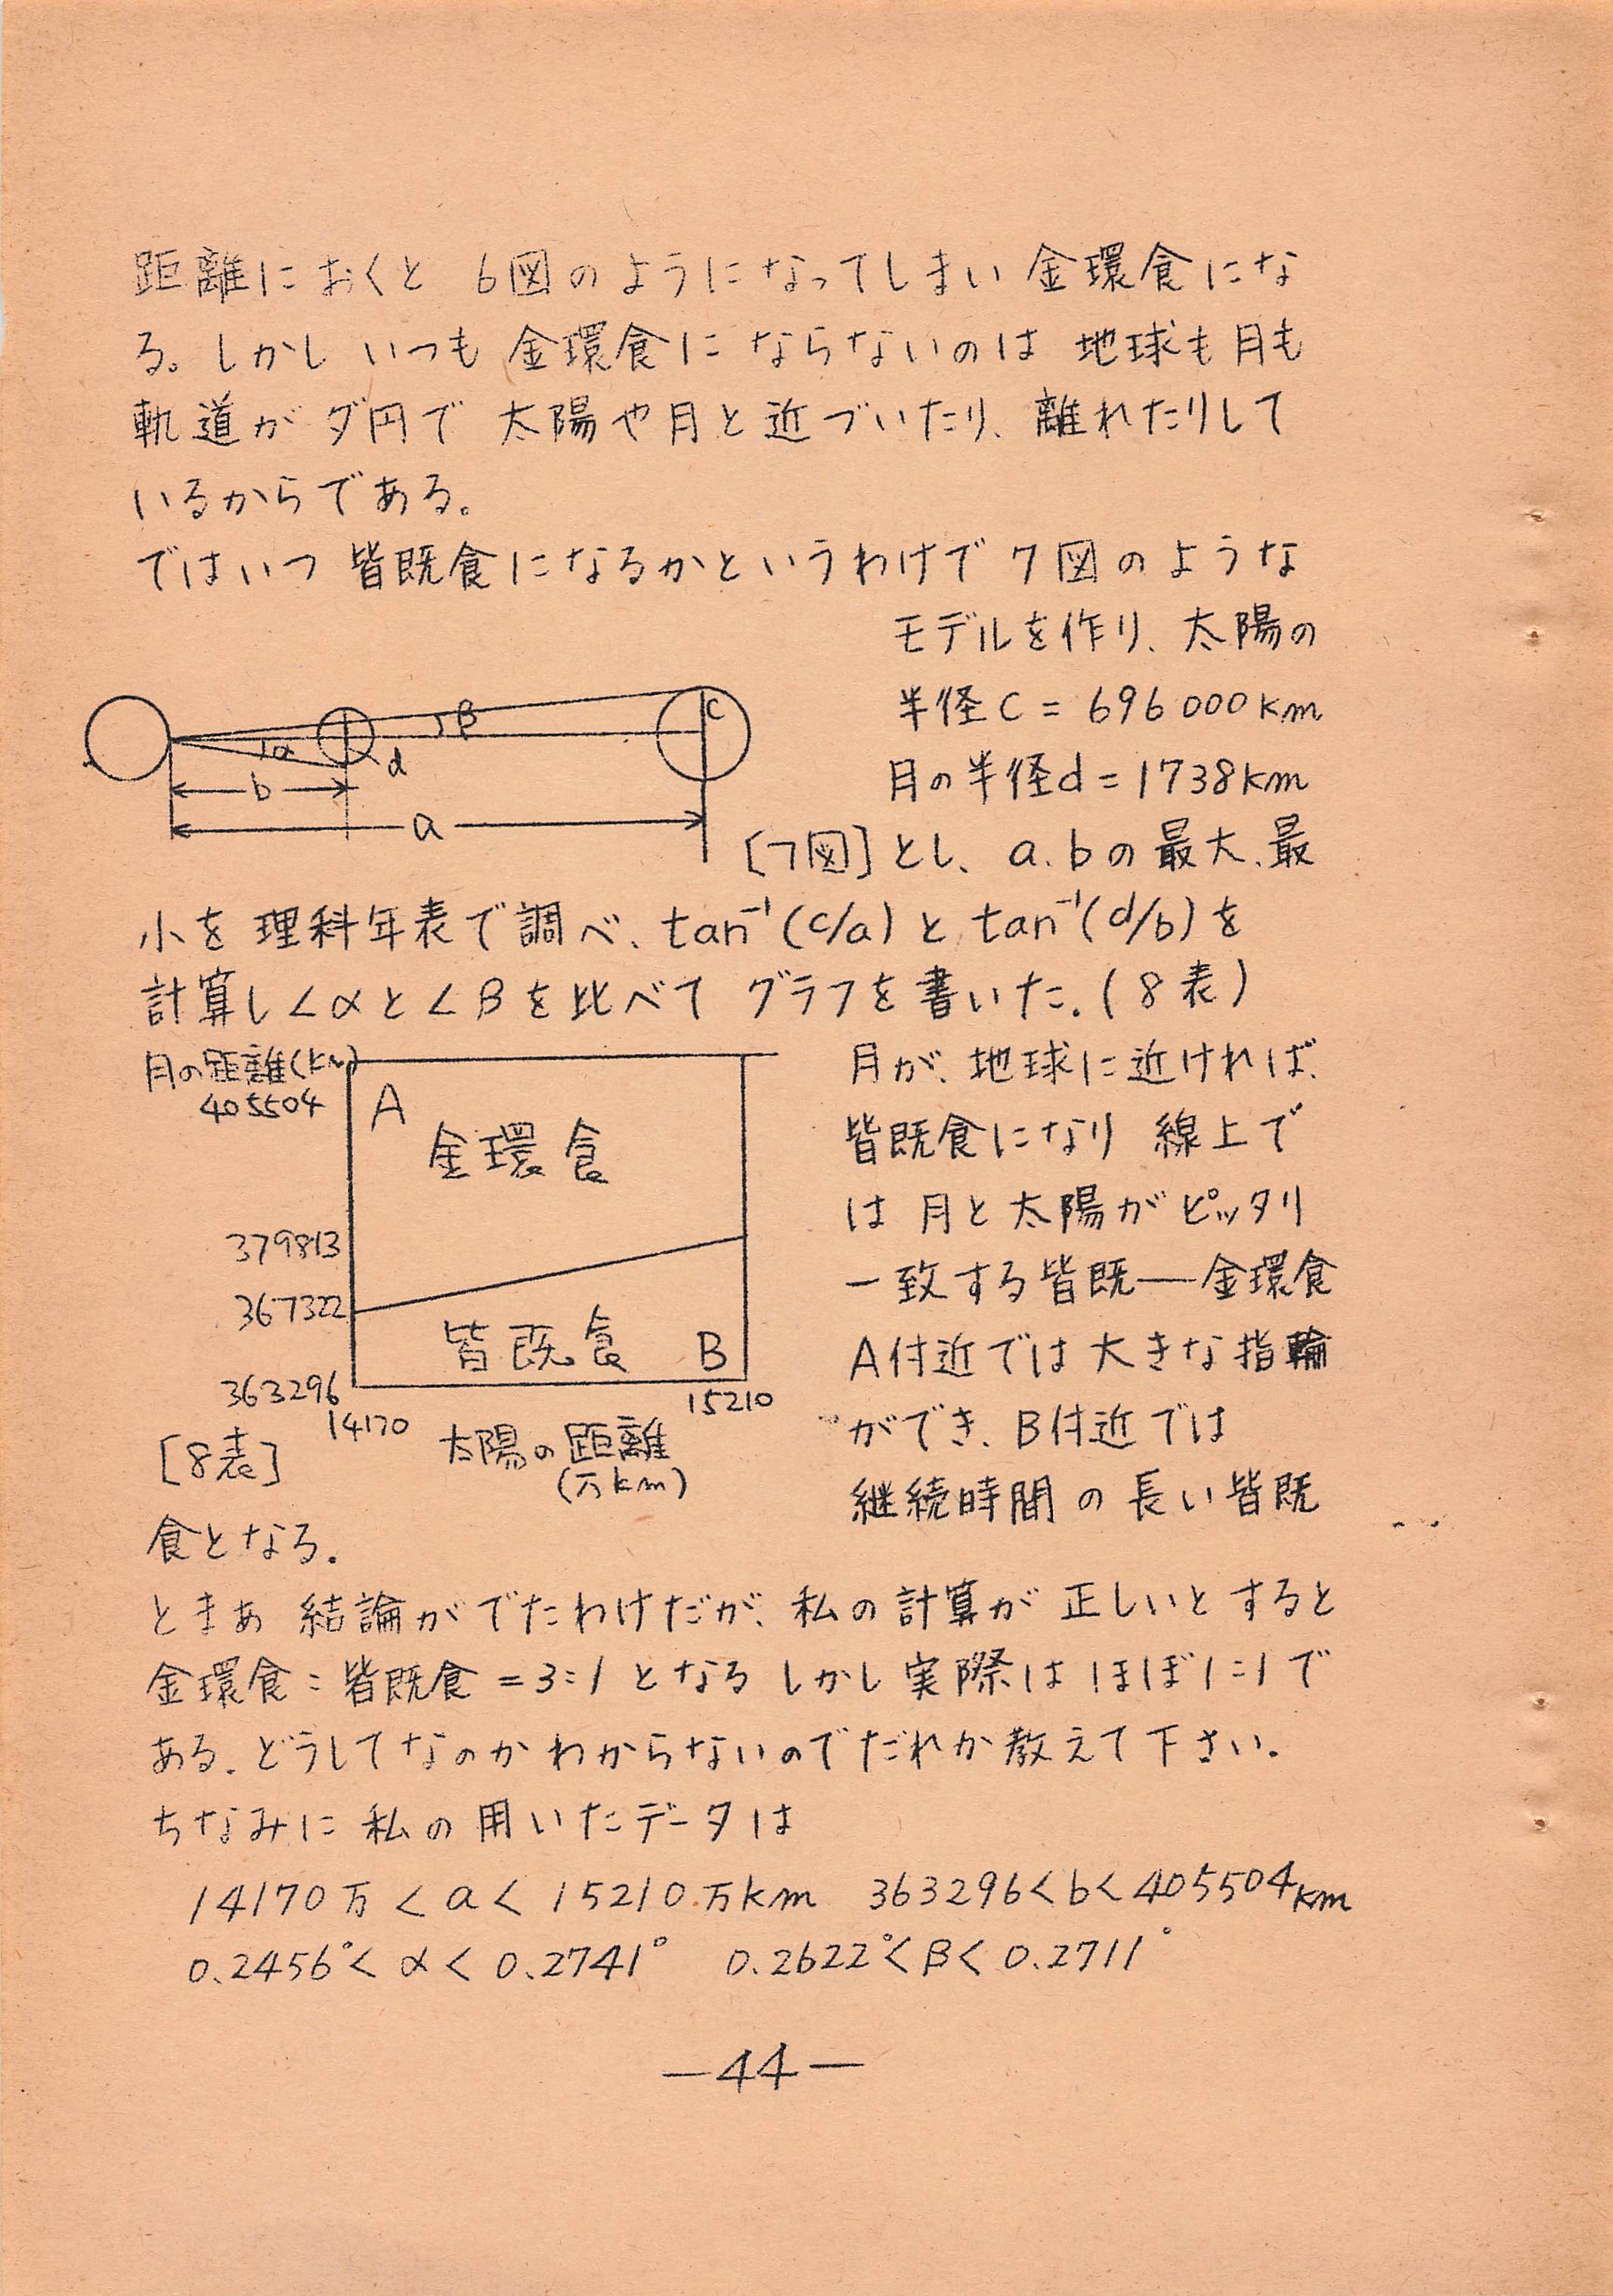 距離におくと 6図のようになってしまい 金環食にな
る。しかし いつも 金環食に ならないのは 地球も月も
軌道が ダ円で 太陽や月と 近づいたり、離れたりして
いるからである。
ではいつ 皆既食になるかというわけで 7図のような
モデルを作り、太陽の
半径C = 696000km
月の半径d = 1738km
c
β
α
d
b
a
[7図] とし、a.bの最大、最
小を 理科年表で調べ、tan⁻¹(c/a)と tan⁻¹(d/b)を
計算し∠αと∠βを比べて グラフを書いた.(8表)
月の距離(km)
405504
A
金環食
379813
367322
皆既食 B
363296
14170
15210
太陽の距離
(万km)
[8表]
月が、地球に近ければ、
皆既食になり 線上で
は 月と太陽がピッタリ
一致する皆既―金環食
A付近では大きな指輪
ができ、B付近では
継続時間の長い皆既
食となる.
とまぁ 結論がでたわけだが、私の計算が 正しいとすると
金環食:皆既食 = 3:1 となる しかし実際は ほぼ1:1で
ある. どうしてなのかわからないのでだれか教えて下さい.
ちなみに 私の用いたデータは
14170万 < a < 15210.万km 363296 < b < 405504km
0.2456° < α < 0.2741° 0.2622° < β < 0.2711°
—44—